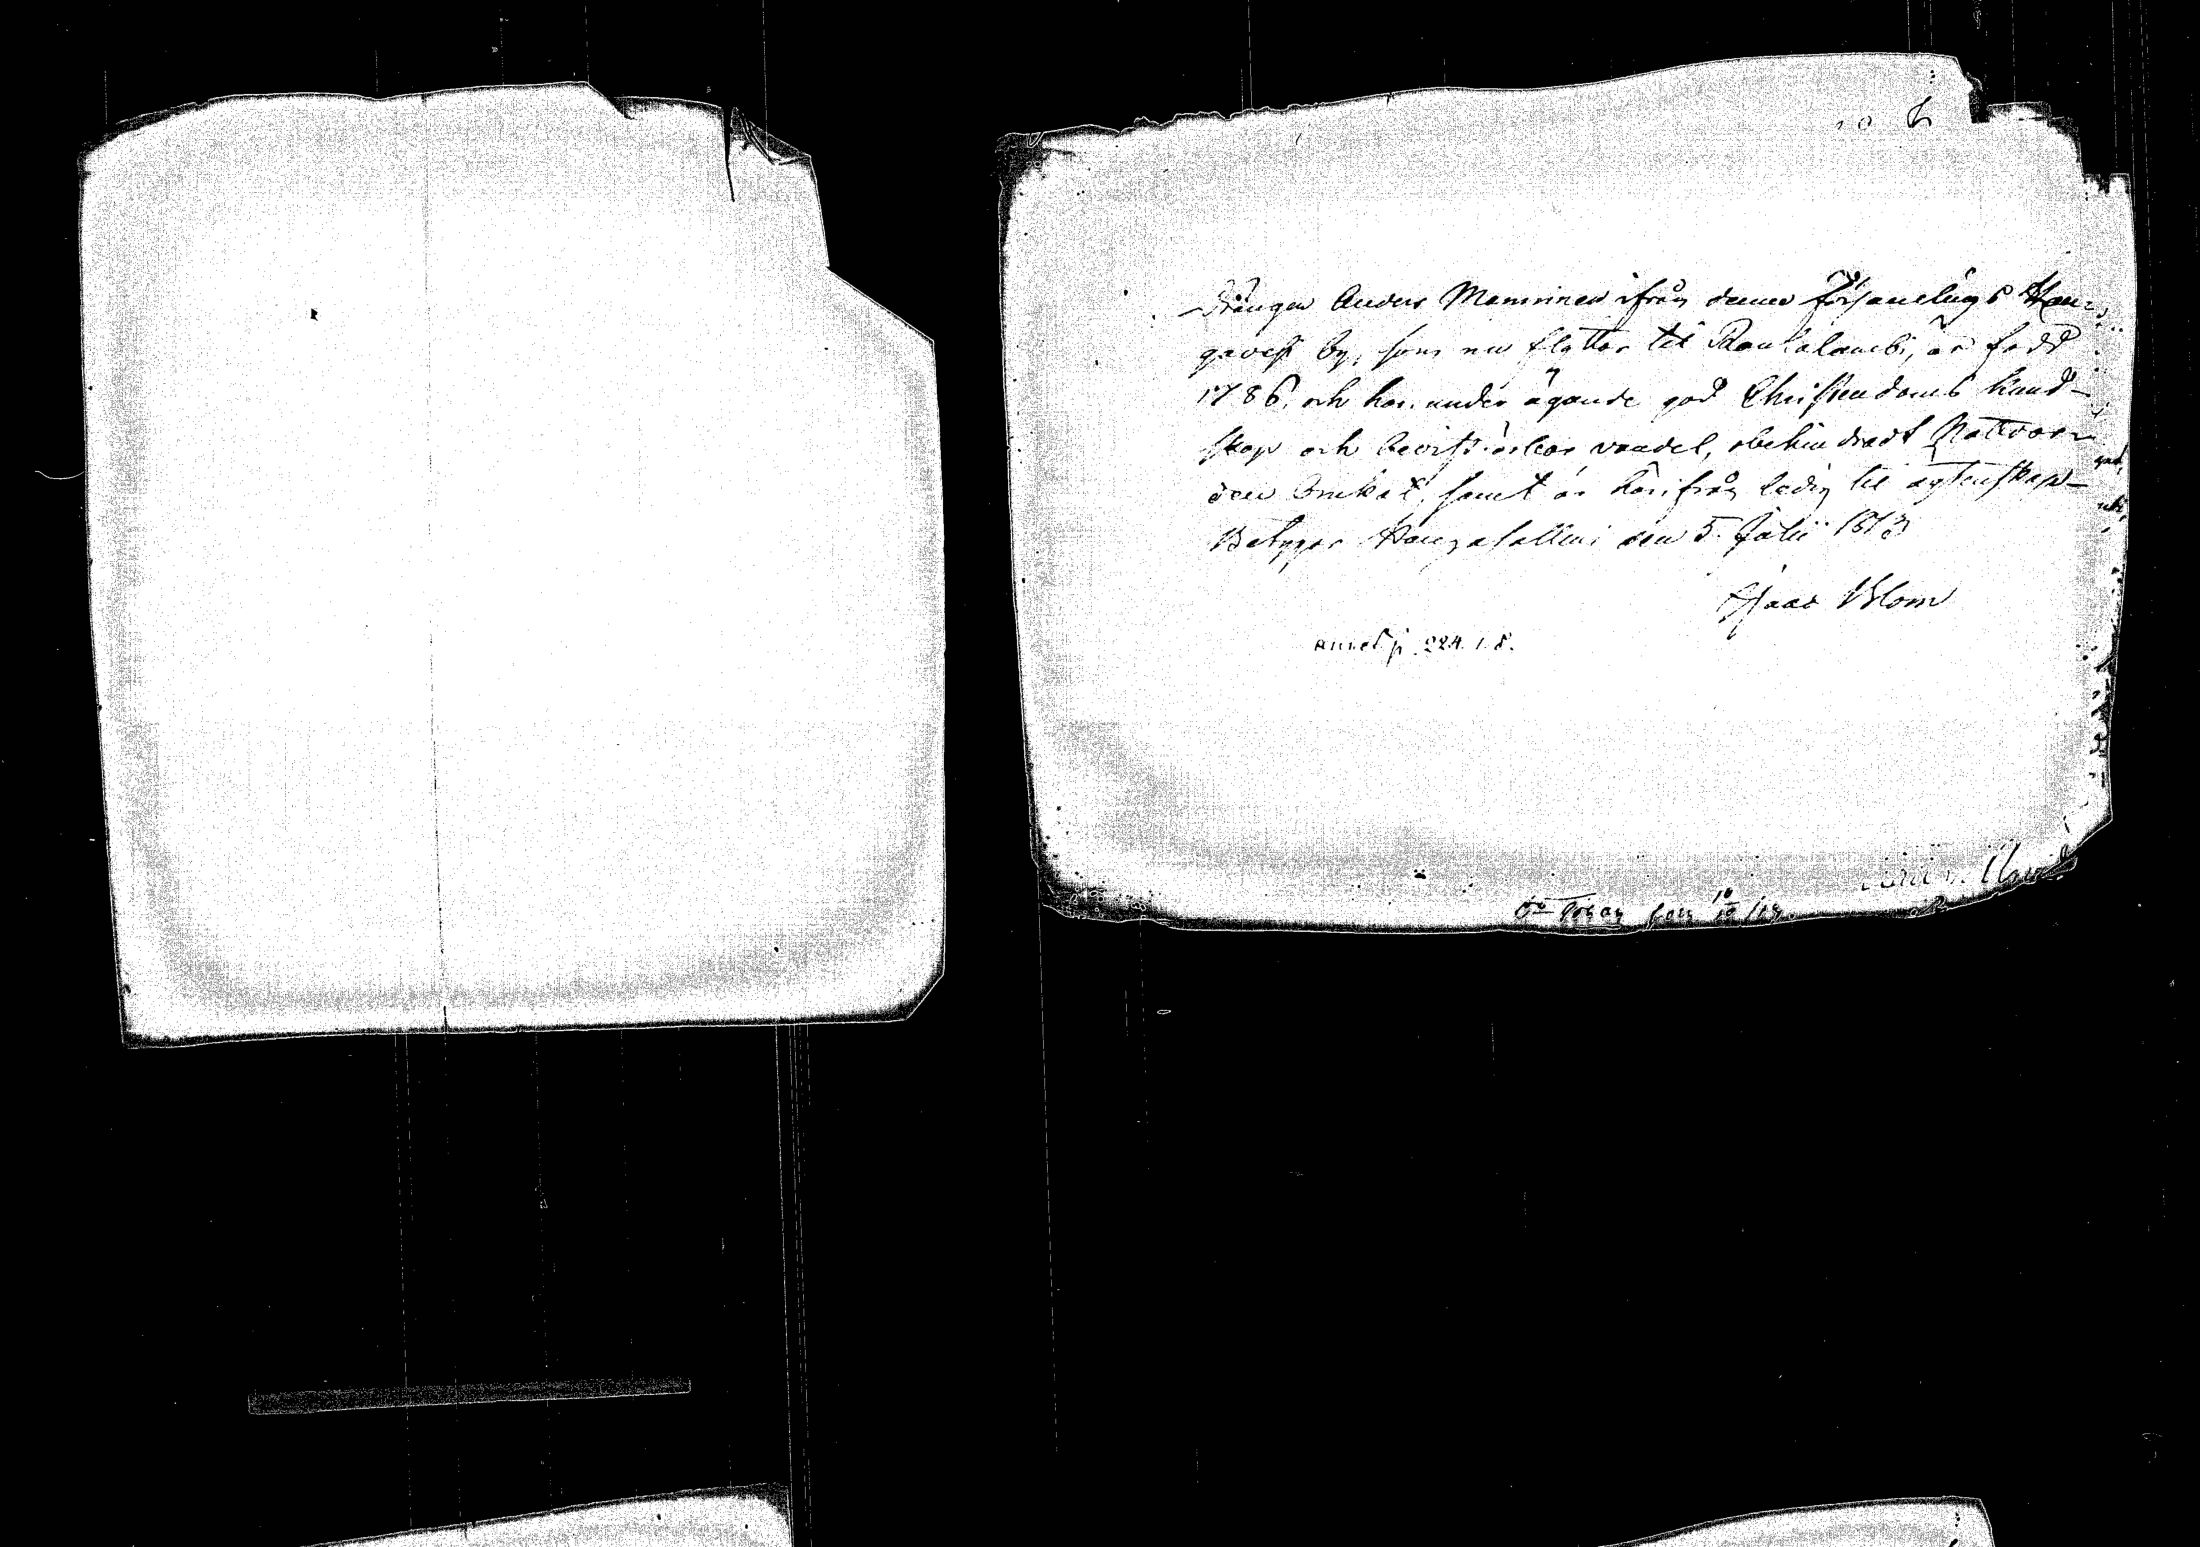 Drängen Anders Manninen ifrån denne Församlings Kan-
gavesi by, som nu flyttar til Rautalambi, är född
1786, och har under ägande god Christendoms kund-
skap och bevist ärbar vandel, obehindradt Nattvar-
den brukat, samt är härifrån ledig til ägtenskap.
Betygar Kangasallmi den 5. Julii 1813
Isaac Blom
annot p. 224. 1. 8.